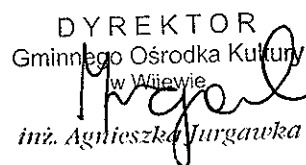 DYREKTOR
Gminnego Ośrodka Kultury
w Wijewie
inż. Agnieszka Jurgawka